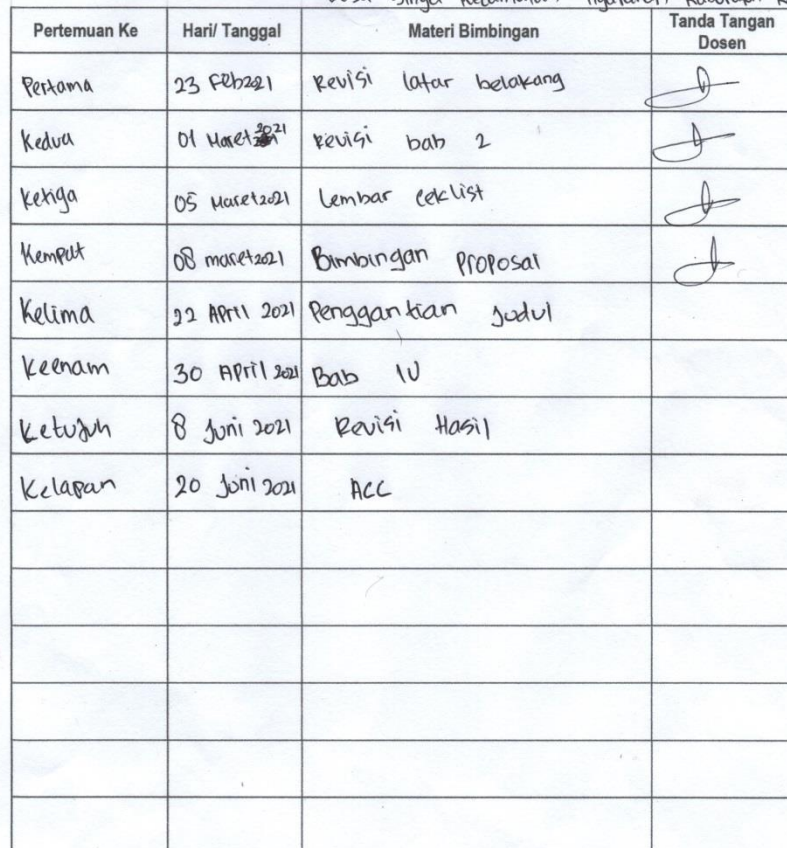 Pertemuan Ke Hari/ Tanggal Materi Bimbingan Tanda Tangan Dosen
Pertama 23 Feb 2021 Revisi latar belakang
Kedua 01 Maret 2021 Revisi bab 2
Ketiga 05 Maret 2021 Lembar ceklist
Kempat 08 maret 2021 Bimbingan Proposal
Kelima 22 April 2021 Penggantian Judul
Keenam 30 April 2021 Bab IV
Ketujuh 8 Juni 2021 Revisi Hasil
Kelapan 20 Juni 2021 ACC